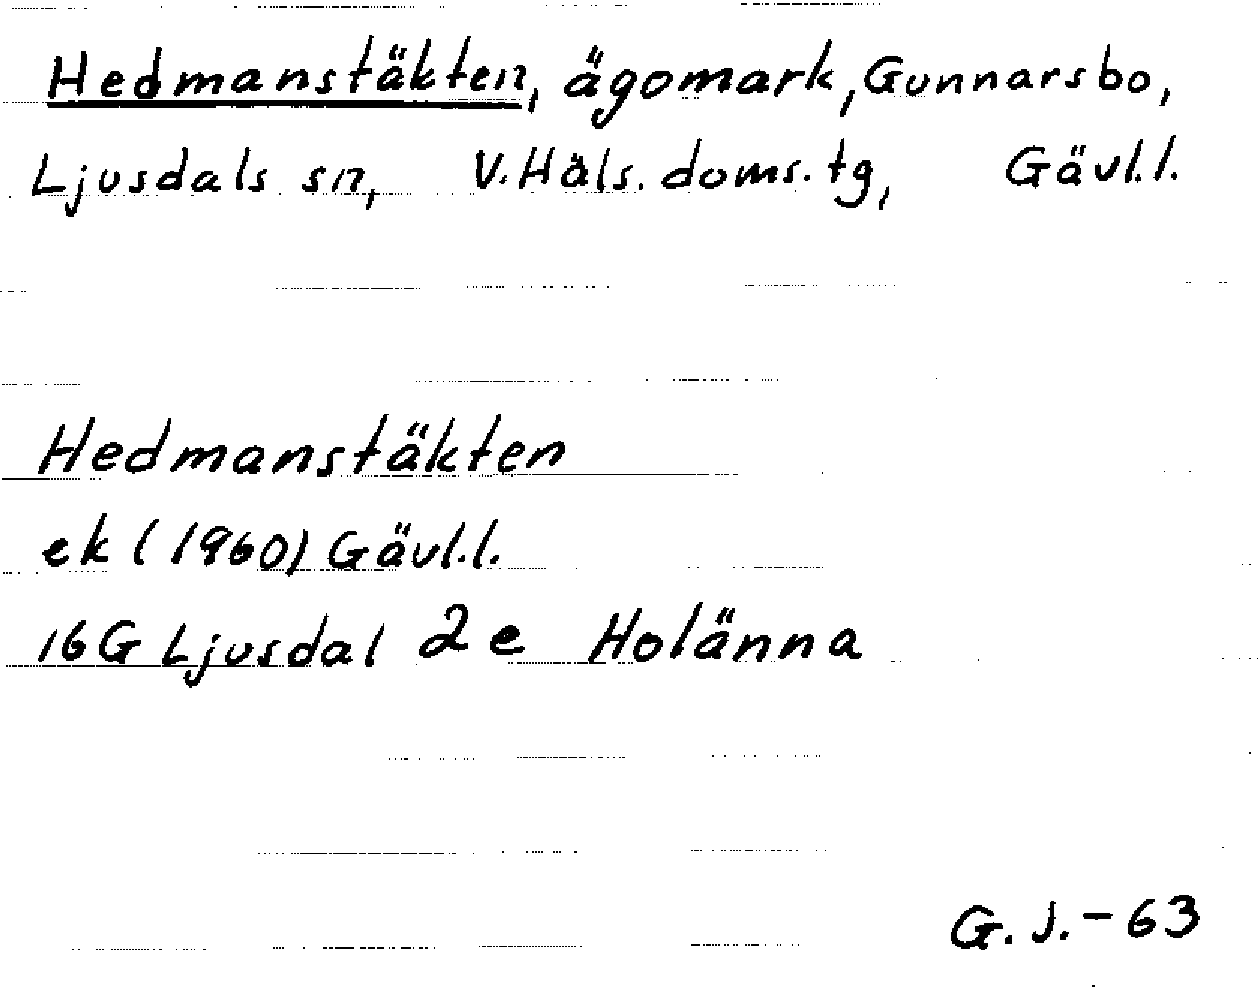 Hedmanstäkten, ägomark, Gunnarsbo,
Ljusdals sn, V. Häls. doms. tg, Gävl.l.
Hedmanstäkten
ek (1960) Gävl.l.
16G Ljusdal 2e Holänna
G.J.-63